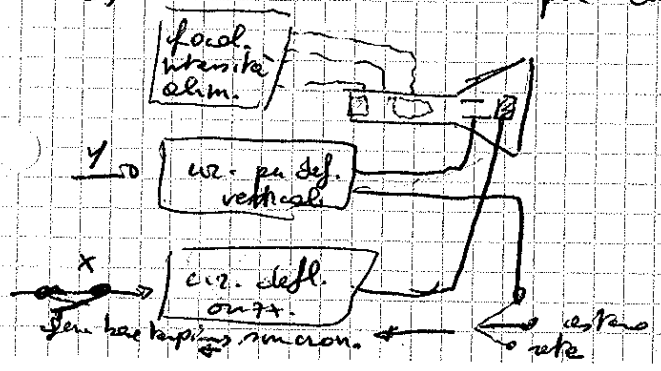 focal.
intensità
alim.
Y
cir. per def.
vertical.
X
cir. defl.
orizz.
gen. base tempi sincron.
esterno
rete